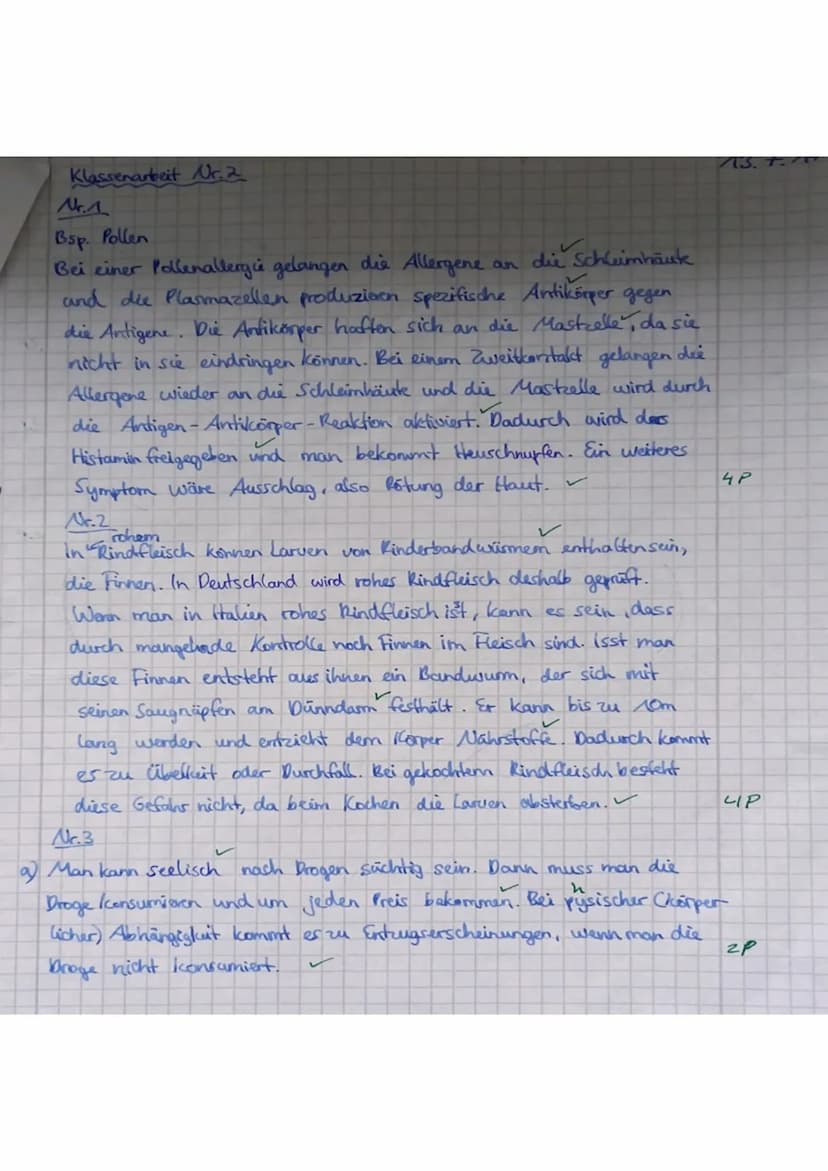 Klassenarbeit Nr.2
Nr.1
Bsp. Pollen
Bei einer Pollenallergie gelangen die Allergene an die Schleimhäute
und die Plasmazellen produzieren spezifische Antikörper gegen
die Antigene. Die Antikörper haften sich an die Mastzelle, da sie
nicht in sie eindringen können. Bei einem Zweitkontakt gelangen die
Allergene wieder an die Schleimhäute und die Mastzelle wird durch
die Antigen-Antikörper-Reaktion aktiviert. Dadurch wird das
Histamin freigegeben und man bekommt Heuschnupfen. Ein weiteres
Symptom wäre Ausschlag, also Rötung der Haut.
4P
Nr.2
In rohem Rindfleisch können Larven von Rinderbandwürmern enthalten sein,
die Finnen. In Deutschland wird rohes Rindfleisch deshalb geprüft.
Wenn man in Italien rohes Rindfleisch ist, kann es sein, dass
durch mangelnde Kontrolle noch Finnen im Fleisch sind. isst man
diese Finnen entsteht aus ihnen ein Bandwurm, der sich mit
seinen Saugnäpfen am Dünndarm festhält. Er kann bis zu 10m
lang werden und entzieht dem Körper Nährstoffe. Dadurch kommt
es zu Übelkeit oder Durchfall. Bei gekochtem Rindfleisch besteht
diese Gefahr nicht, da beim Kochen die Larven absterben.
4P
Nr.3
a) Man kann seelisch nach Drogen süchtig sein. Dann muss man die
Droge konsumieren und um jeden Preis bekommen. Bei physischer (körper-
licher) Abhängigkeit kommt es zu Entzugserscheinungen, wenn man die
Droge nicht konsumiert.
2P